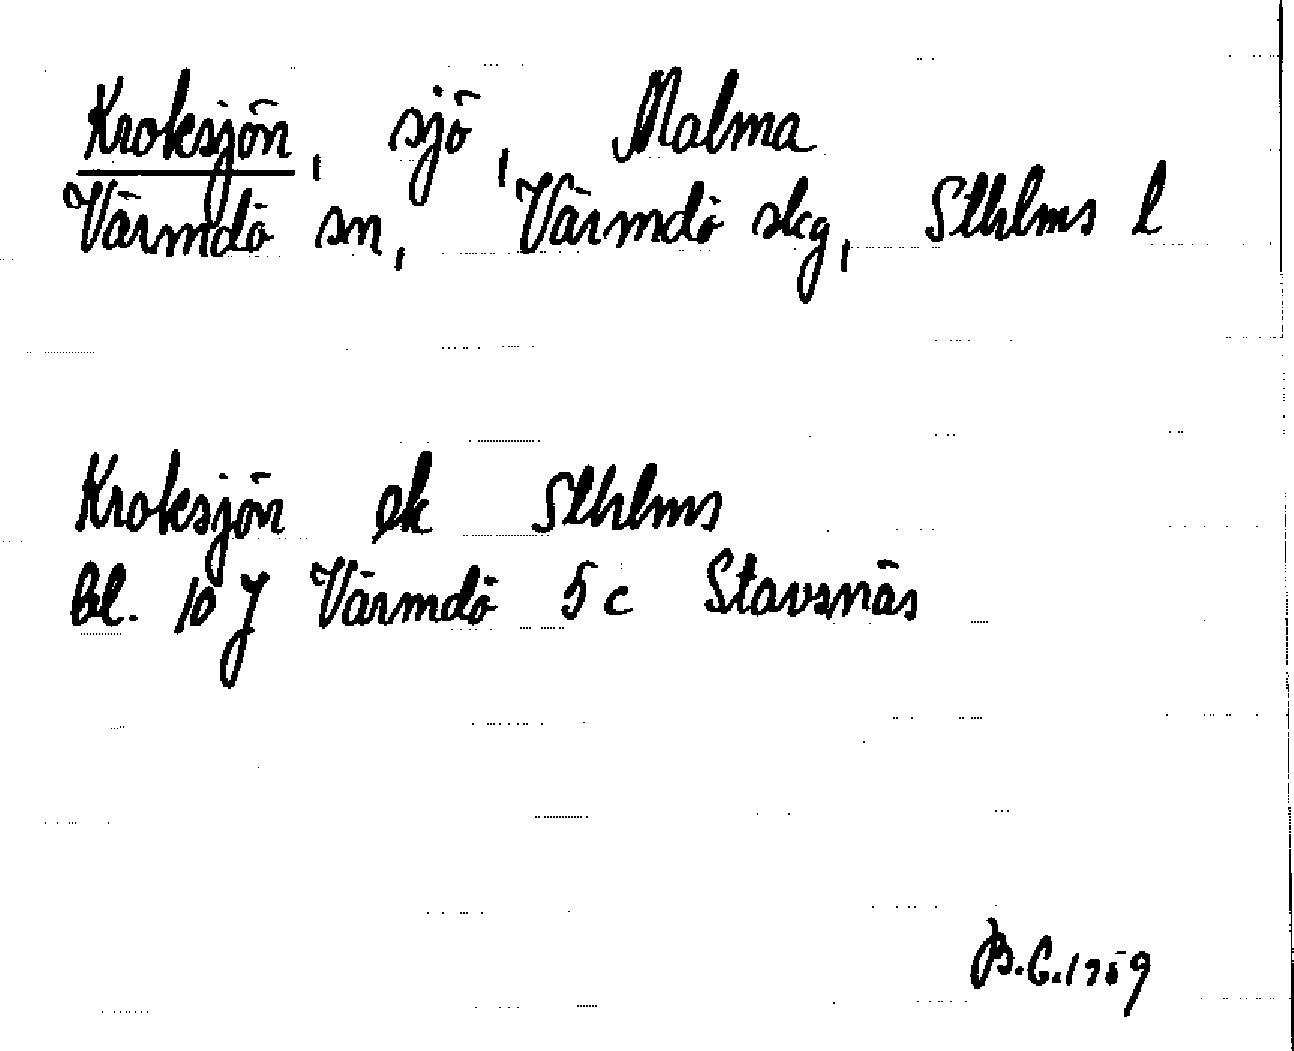 Kroksjön, sjö, Malma
Värmdö sn, Värmdö skg, Sthlms l
Kroksjön ek Sthlms
bl. 10 J Värmdö 5 c Stavsnäs
B.C. 1959